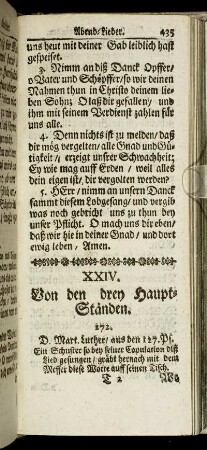 Abend-Lieder. 435
uns heut mit deiner Gab leiblich hast
gespeiset.
3. Nimm an diß Danck Opffer/
o Vater und Schöpffer/ so wir deinen
Nahmen thun in Christo deinem lie-
ben Sohn: O laß dir gefallen/ und
ihm mit seinem Verdienst zahlen für
uns alle.
4. Denn nichts ist zu melden/ daß
dir mög vergelten/ alle Gnad und Gü-
tigkeit/ erzeigt unsrer Schwachheit;
Ey wie mag auff Erden/ weil alles
dein eigen ist/ dir vergolten werden?
5. HErr/ nimm an unsern Danck
sammt diesem Lobgesang/ und vergib
was noch gebricht uns zu thun bey
unser Pflicht. O mach uns dir eben/
daß wir hie in deiner Gnad/ und dort
ewig leben, Amen.
XXIV.
Von den drey Haupt-
Ständen.
172.
D. Mart. Luther/ aus den 127. Ps.
Ein Schuster so bey seiner Copulation diß
Lied gesungen/ gräbt hernach mit dem
Messer diese Worte auff seinen Tisch.
T 2 Wo